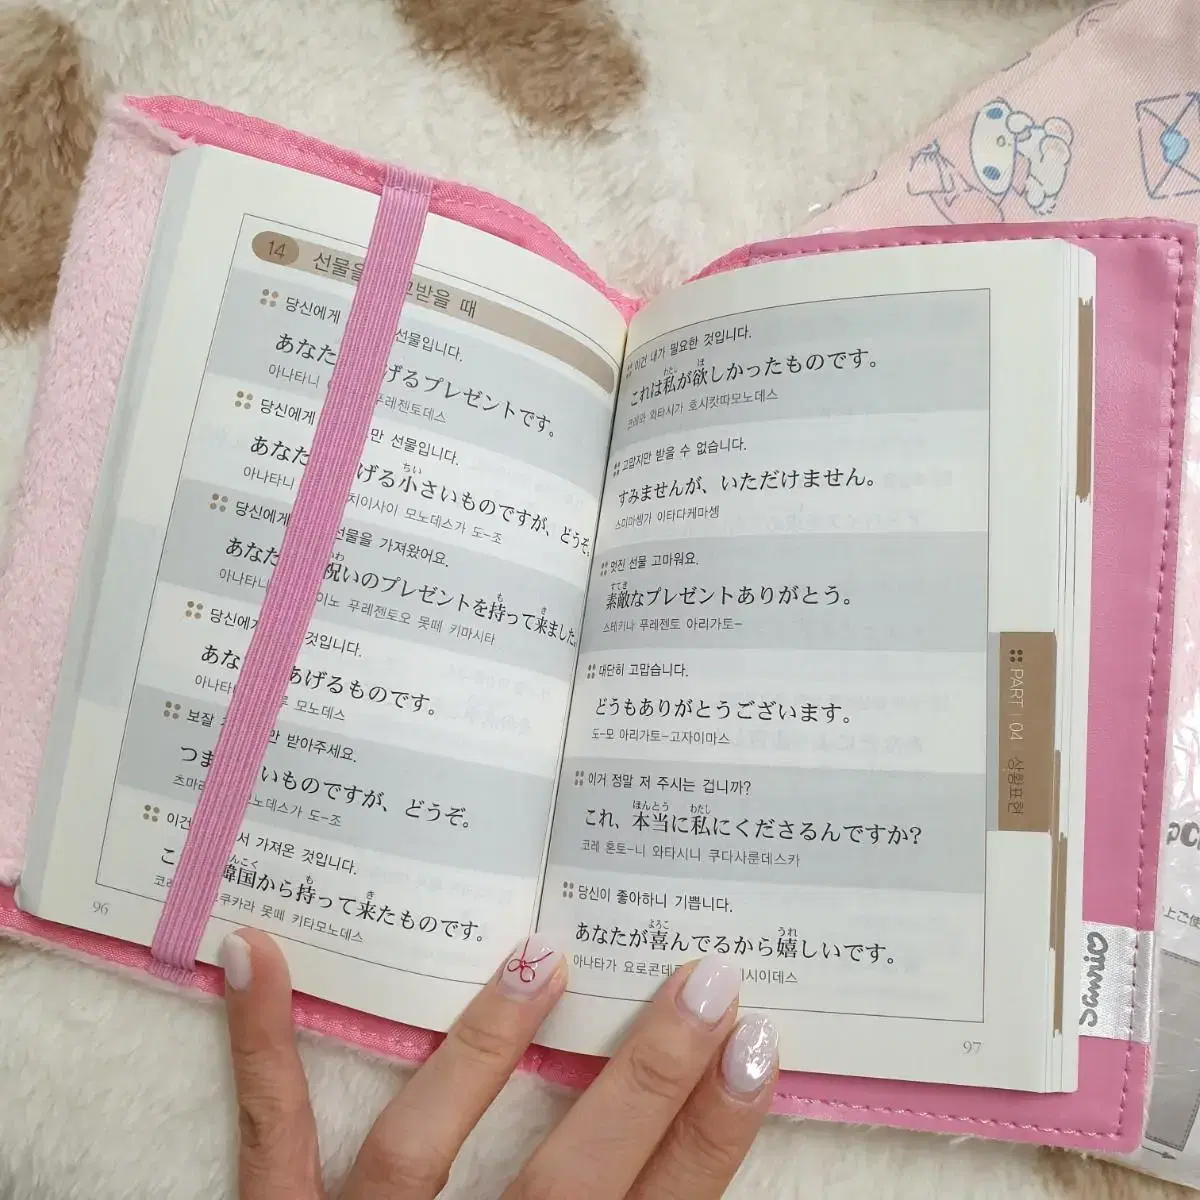 14 선물을 고받을 때
당신에게 선물입니다.
あなた げるプレゼントです。
아나타니 푸레젠토데스
당신에게 만 선물입니다.
あなた げる小さいものですが、どうぞ。
ちい
아나타니 치이사이 모노데스가 도-조
당신에게 선물을 가져왔어요.
あなた 祝いのプレゼントを持って来ました。
わ も き
아나타니 이노 푸레젠토오 못떼 키마시타
당신에게 것입니다.
あな あげるものです。
아나타 모노데스
보잘 만 받아주세요.
つま いものですが、どうぞ。
츠마 모노데스가 도-조
이건 서 가져온 것입니다.
こ 韓国から持って来たものです。
んこく も き
코레 쿠카라 못떼 키타모노데스
96
이건 내가 필요한 것입니다.
これは私が欲しかったものです。
わたし ほ
코레와 와타시가 호시캇따모노데스
고맙지만 받을 수 없습니다.
すみませんが、いただけません。
스미마셍가 이타다케마셍
멋진 선물 고마워요.
素敵なプレゼントありがとう。
すてき
스테키나 푸레젠토 아리가토-
대단히 고맙습니다.
どうもありがとうございます。
도-모 아리가토-고자이마스
이거 정말 저 주시는 겁니까?
これ、本当に私にくださるんですか?
ほんとう わたし
코레 혼토-니 와타시니 쿠다사룬데스카
당신이 좋아하니 기쁩니다.
あなたが喜んでるから嬉しいです。
よろこ うれ
아나타가 요로콘데루 시이데스
97
PART 04 상황표현
sanrio